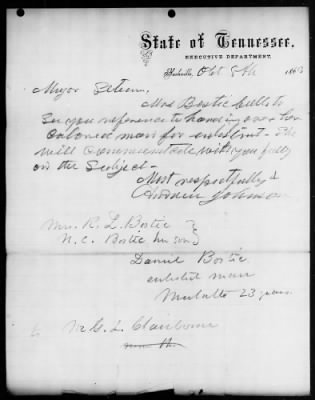 State of Tennessee,
EXECUTIVE DEPARTMENT,
Nashville, Oct 8th 1863
Major Stearns.
Mrs Bostic calls to
See you reference to having over a her
Colored man for enlistment - She
will Communicate with you fully
on the Subject -
Most respectfully &
Andrew Johnson
Mrs. R. L. Bostic }
N. C. Bostic her son }
Daniel Bostic
enlisted man
Mulatto 23 years.
G. L. Claiborne